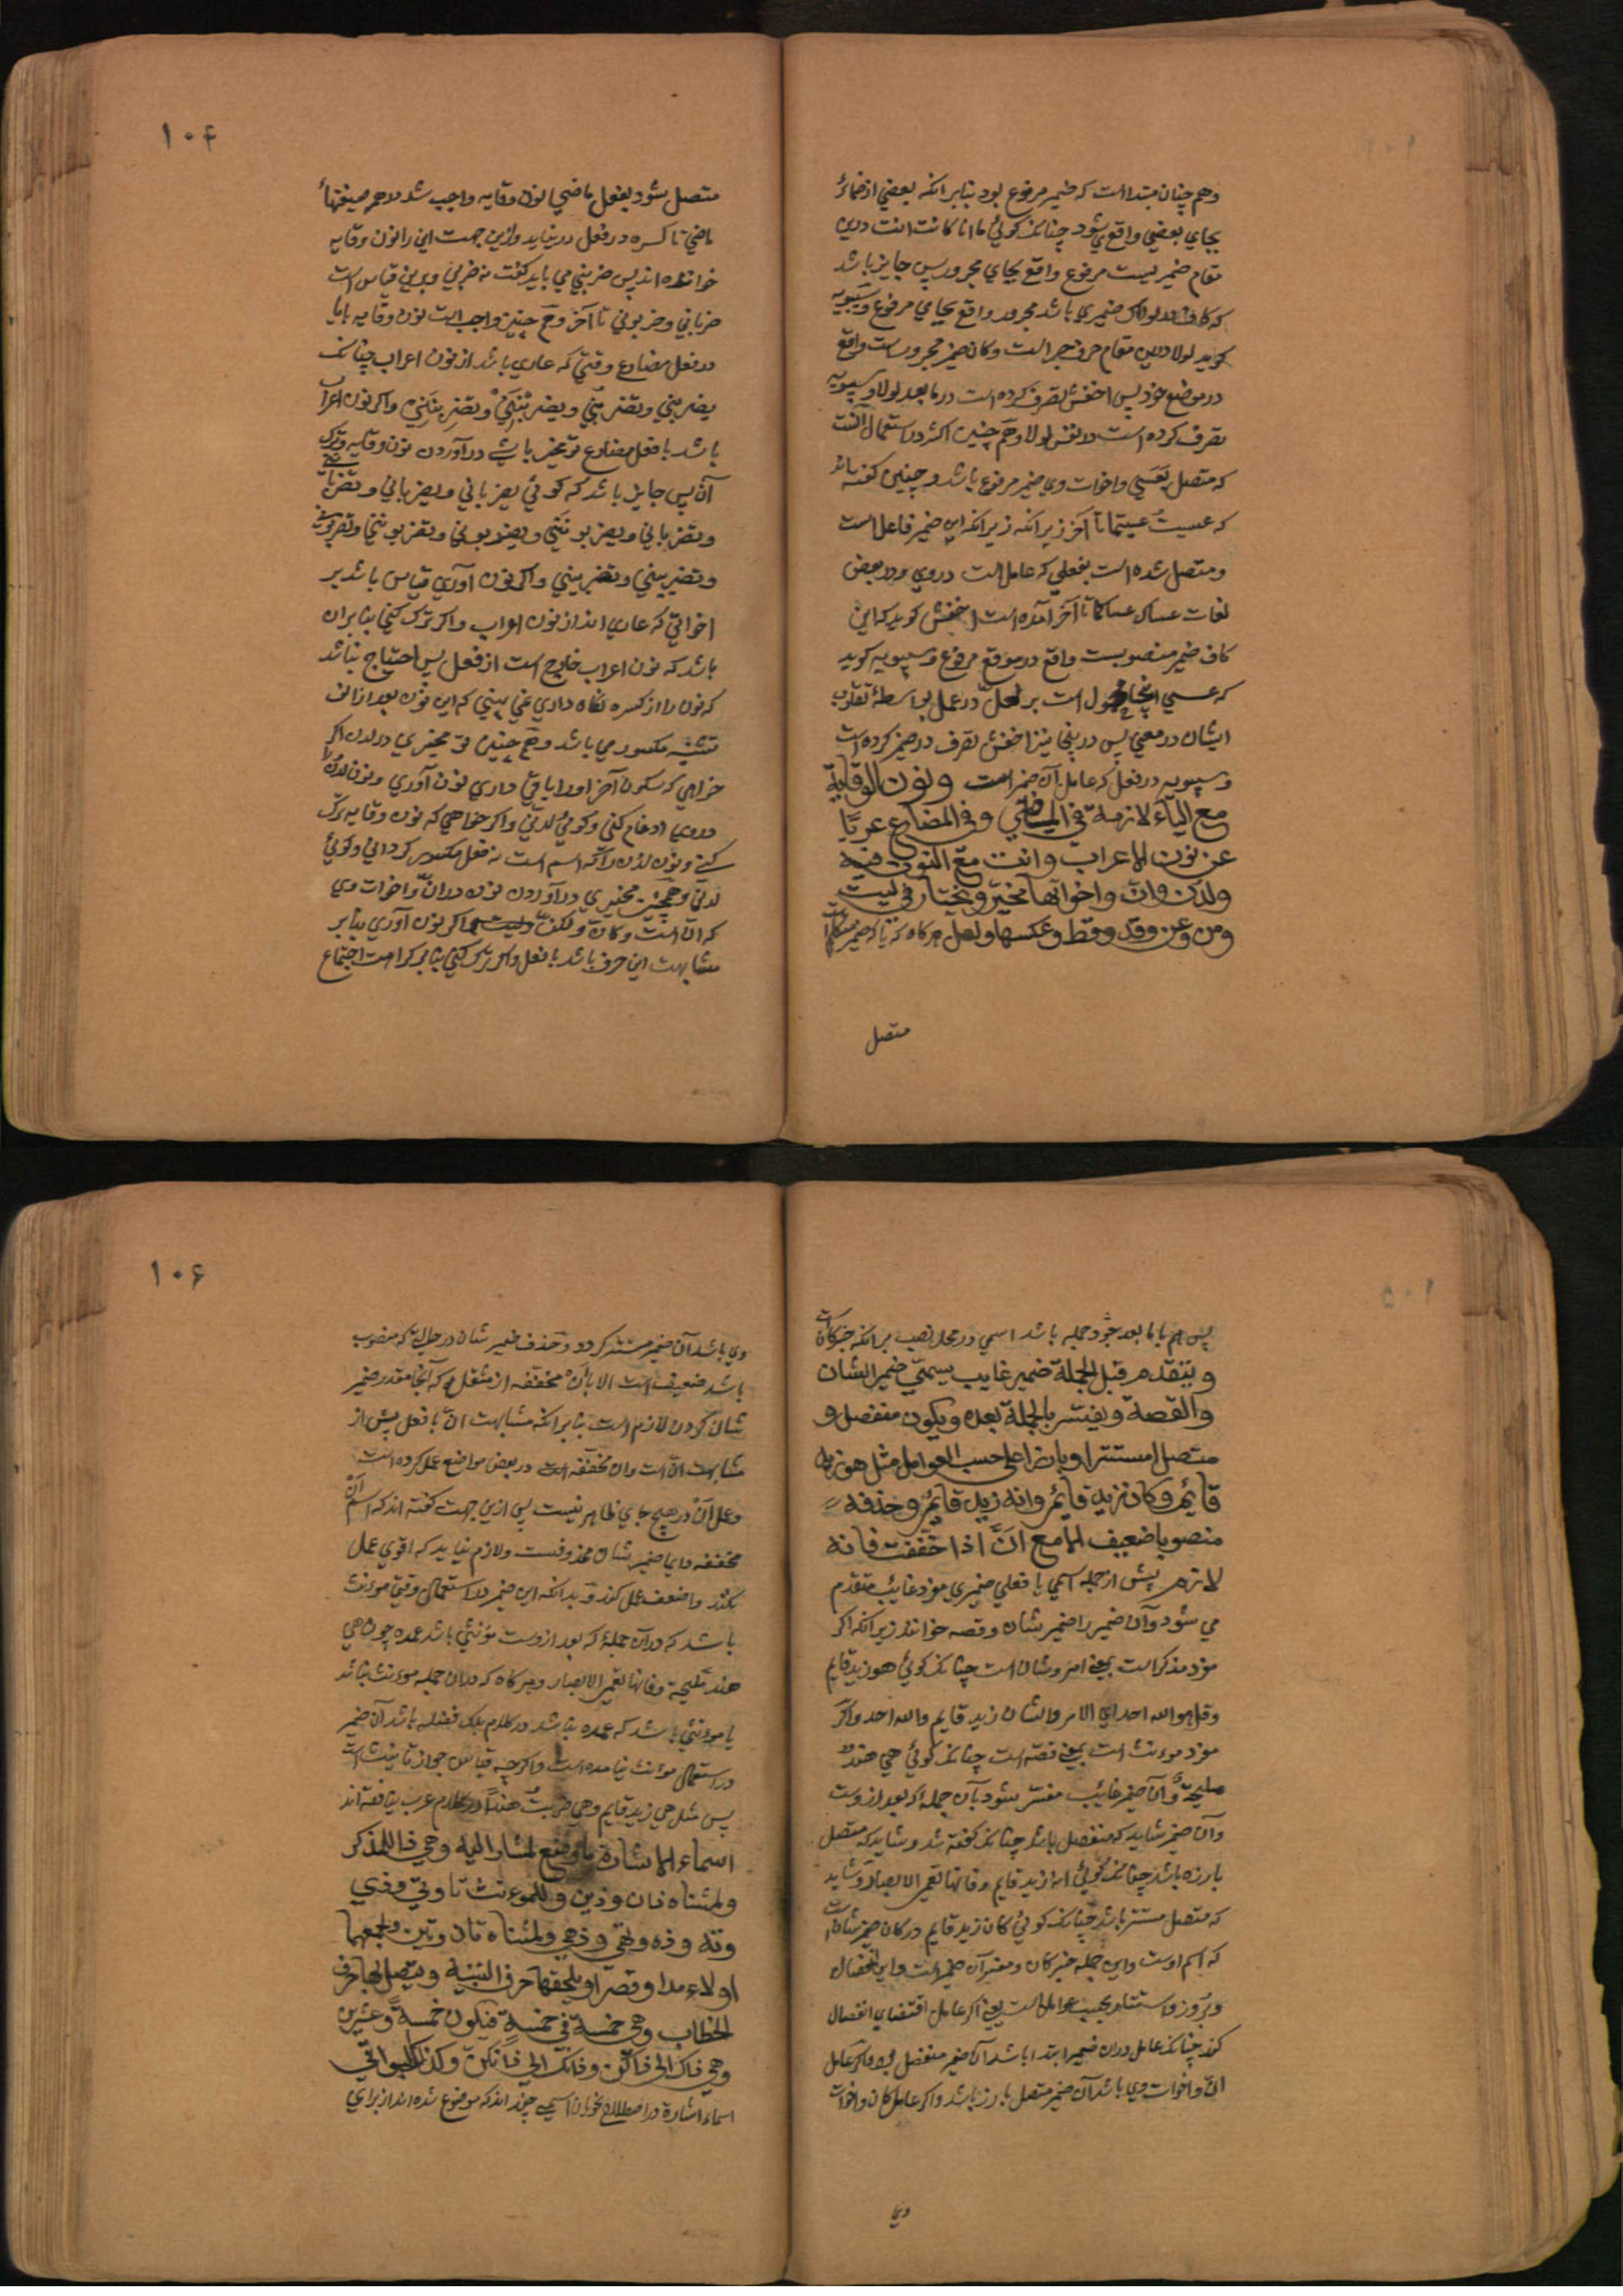 وهم چنان مبتدا است که ضمیر مرفوع بود بنابر انکه بعضي از ضمائر
بجاي بعضي واقع میشود چنانکه کوئي ما انا کانت انت درین
مقام ضمیر لیست مرفوع واقع بجاي مجرور پس جایز باشد
که کاف در لولاک ضمیري باشد مجرور واقع بجاي مرفوع وسیبویه
کوید لولا درین مقام حرف جر است وکاف ضمیر مجرور است واقع
در موضع خود پس اخفش تصرف کرده است در ما بعد لولا وسیبویه
تصرف کرده است در نفس لولا وهم چنین اکثر در استعمال آنست
که متصل بعسي واخوات وي ضمیر مرفوع باشد وچنین کفته باشد
که عسیت عسیتما تا آخر زیرانکه زیرانکه این ضمیر فاعل است
ومتصل شده است بفعلي که عامل است دروي ودر بعض
لغات عساک عساکما تا آخر آمده است اخفش کوید که این
کاف ضمیر منصوبست واقع در موقع مرفوع وسیبویه کوید
که عسي اینجا محمول است بر لعل در عمل بواسطهٔ تقارب
ایشان در معني پس درینجا نیز اخفش تصرف در ضمیر کرده است
وسیبویه در فعل که عامل آن ضمیر است ونون الوقایة
مع الیاء لازمة في الماضي وفي المضارع عریا
عن نون الاعراب وانت مع النون فیه
ولدن وان واخواتها مخیر ویختار في لیت
ومن وعن وقد وقط وعکسها لعل هرکاه که یا که ضمیر متکلم است
متصل
۱۰۴
متصل شود بفعل ماضي نون وقایه واجب شد در همه صیغهاء
ماضي تا کسره در فعل در نیاید وازین جهت این را نون وقایه
خوانده اند پس ضربني مي باید کفت نه ضربي وبرین قیاس است
ضرباني وضربوني تا آخر وهم چنین واجب است نون وقایه با یا
در فعل مضارع وقتي که عاري باشد از نون اعراب چنانکه
یضربني وتضربني ویضربنني وتضربنني واکر نون اعراب
باشد با فعل مضارع تو مخیر باشي در آوردن نون وقایه وترک
آن پس جایز باشد که کوئي یضرباني ویضرباني وتضرباني
وتضرباني ویضربونني ویضربوني وتضربونني وتضربوني
وتضربینني وتضربیني واکر نون آوري قیاس باشد بر
اخواتي که عاري اند از نون اعراب واکر ترک کني بنابران
باشد که نون اعراب خارج است از فعل پس احتیاج نباشد
که نون را از کسره نکاه داري نمي بیني که این نون بعد از الف
تثنیه مکسور مي باشد وهم چنین تو مخیري در لدن اکر
خواهي که سکون آخر اورا باقي داري نون آوري ونون لدن را
دروي ادغام کني وکوئي لدني واکر خواهي که نون وقایه ترک
کني ونون لدن را که اسم است نه فعل مکسور کرداني وکوئي
لدني وهمچنین مخیري در آوردن نون در ان واخوات وي
که ان است وکان ولکن ولیت اکر نون آوري بنابر
مشابهت این حرف باشد با فعل واکر ترک کني بنابر کراهت اجتماع
پس اسم با ما بعد خود جمله باشد اسمي در محل نصب بر انکه خبر کانست
ویتقدم قبل الجملة ضمیر غایب یسمي ضمیر الشان
والقصة ویفسر بالجملة بعده ویکون منفصلا و
متصلا مستترا وبارزا علي حسب العوامل مثل هو زید
قائم وکان زید قائم وانه زید قائم وحذفه
منصوبا ضعیف الا مع ان اذا خففت فانه
لازم پیش از جمله اسمي یا فعلي ضمیري مفرد غائب متقدم
مي شود وآن ضمیر را ضمیر شان وقصه خوانند زیرانکه اکر
مفرد مذکر است بمعني امر وشان است چنانکه کوئي هو زید قایم
وقل هو الله احد اي الامر والشان زید قایم والله احد واکر
مفرد مونث است بمعني قصه است چنانکه کوئي هي هند
ملیحة وآن ضمیر غائب مفسر شود بآن جمله که بعد ازوست
وآن ضمیر شاید که منفصل باشد چنانکه کفته شد وشاید که متصل
بارزه باشد چنانکه کوئي انه زید قایم وفانها لاتعمي الابصار وشاید
که متصل مستتر باشد چنانکه کوئي کان زید قایم در کان ضمیر شانست
که اسم اوست واین جمله خبر کان ومفسر آن ضمیر است واین انفصال
وبروز واستتار بحسب عوامل است یعني اکر عامل اقتضاي انفصال
کند چنانکه عامل دران ضمیر ابتدا باشد آن ضمیر منفصل بود واکر عامل
ان واخوات وي باشد آن ضمیر متصل بارز باشد واکر عامل کان واخوات
وي
۱۰۶
وي باشد آن ضمیر مستتر کردد وحذف ضمیر شان در حالتي که منصوب
باشد ضعیف است الا با ان مخففه از مثقله که آنجا مقدر ضمیر
شان کردن لازم است بنابر انکه مشابهت ان با فعل بیش از
مشابهت ان است وان مخففه است در بعض مواضع عمل کرده است
وعمل ان در هیچ جاي ظاهر نیست پس ازین جهت کفته اند که اسم ان
مخففه دایما ضمیر شان محذوفست ولازم نیاید که اقوي عمل
نکند واضعف عمل کند وبدانکه این ضمیر در استعمال وقتي مونث
باشد که در آن جمله که بعد ازوست مونثي باشد عمده چون هي
هند ملیحة وفانها لاتعمي الابصار وهرکاه که دران جمله مونث نباشد
یا مونثي باشد که عمده نباشد در کلام بلکه فضله باشد آن ضمیر
در استعمال مونث نیامده است واکرچه قیاس جواز تانیث است
پس مثل هي زید قایم وهي ضربت هندا در کلام عرب نیافته اند
اسماء الاشارة ما وضع لمشار الیه وهي ذا للمذکر
ولمثناه ذان وذین وللمونث تا وتي وذي
وته وذه وتهي وذهي ولمثناه تان وتین ولجمعهما
اولاء مدا وقصرا ویلحقها حرف التنبیه ویتصل بها حرف
الخطاب وهي خمسة في خمسة فیکون خمسة وعشرین
وهي ذاک الي ذاکن وذانک الي ذانکن وکذلک البواقي
اسماء اشارة در اصطلاح نحویان اسمي چند اند که موضوع شده اند از براي